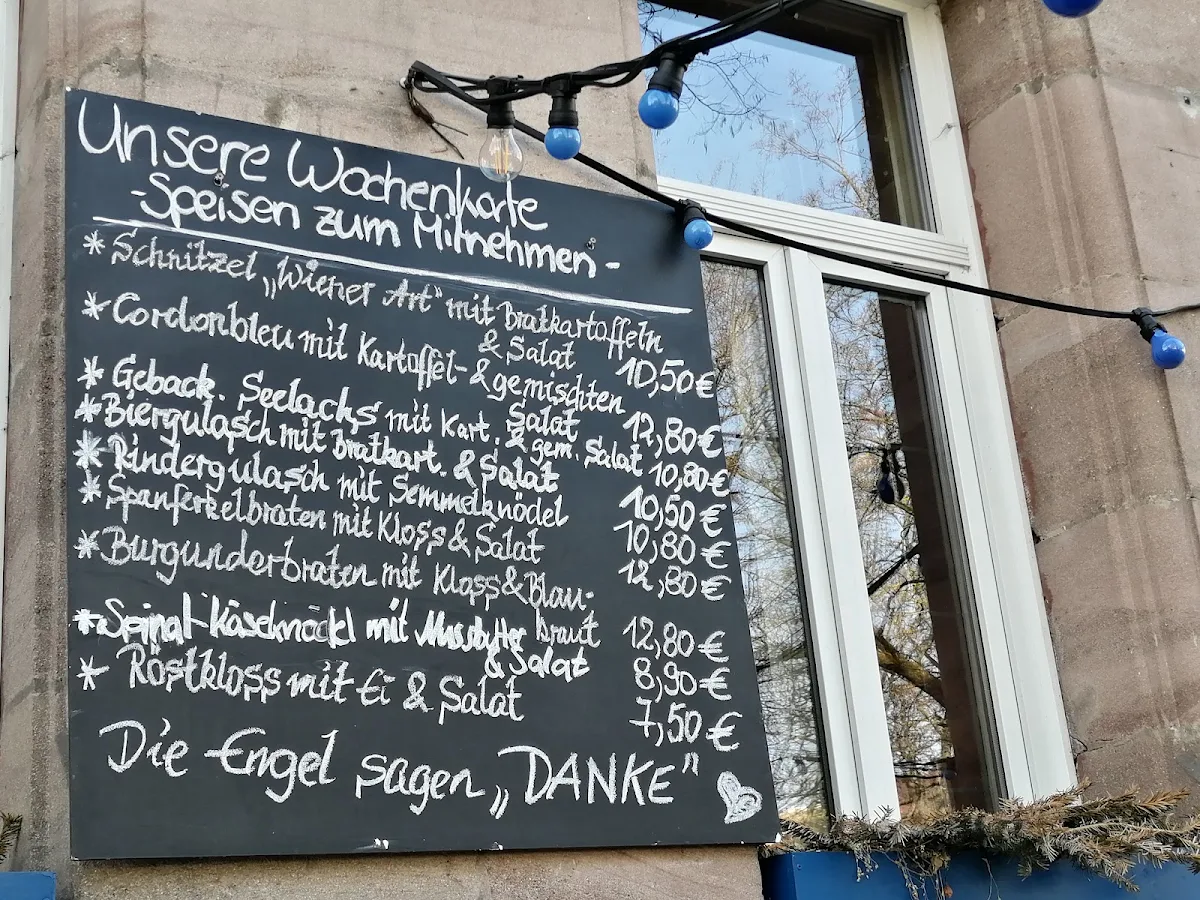 Unsere Wochenkarte
-Speisen zum Mitnehmen-
* Schnitzel „Wiener Art" mit Bratkartoffeln
& Salat 10,50€
* Cordonbleu mit Kartoffel- & gemischten
Salat 12,80€
* Geback. Seelachs mit Kart. & gem. Salat 10,80€
* Biergulasch mit Bratkart. & Salat 10,50€
* Rindergulasch mit Semmelknödel 10,80€
* Spanferkelbraten mit Kloss & Salat 12,80€
* Burgunderbraten mit Kloss & Blau-
kraut 12,80€
* Spinat-Käseknöckl mit Nussbutter
& Salat 8,90€
* Röstkloss mit Ei & Salat 7,50€
Die Engel sagen „DANKE"